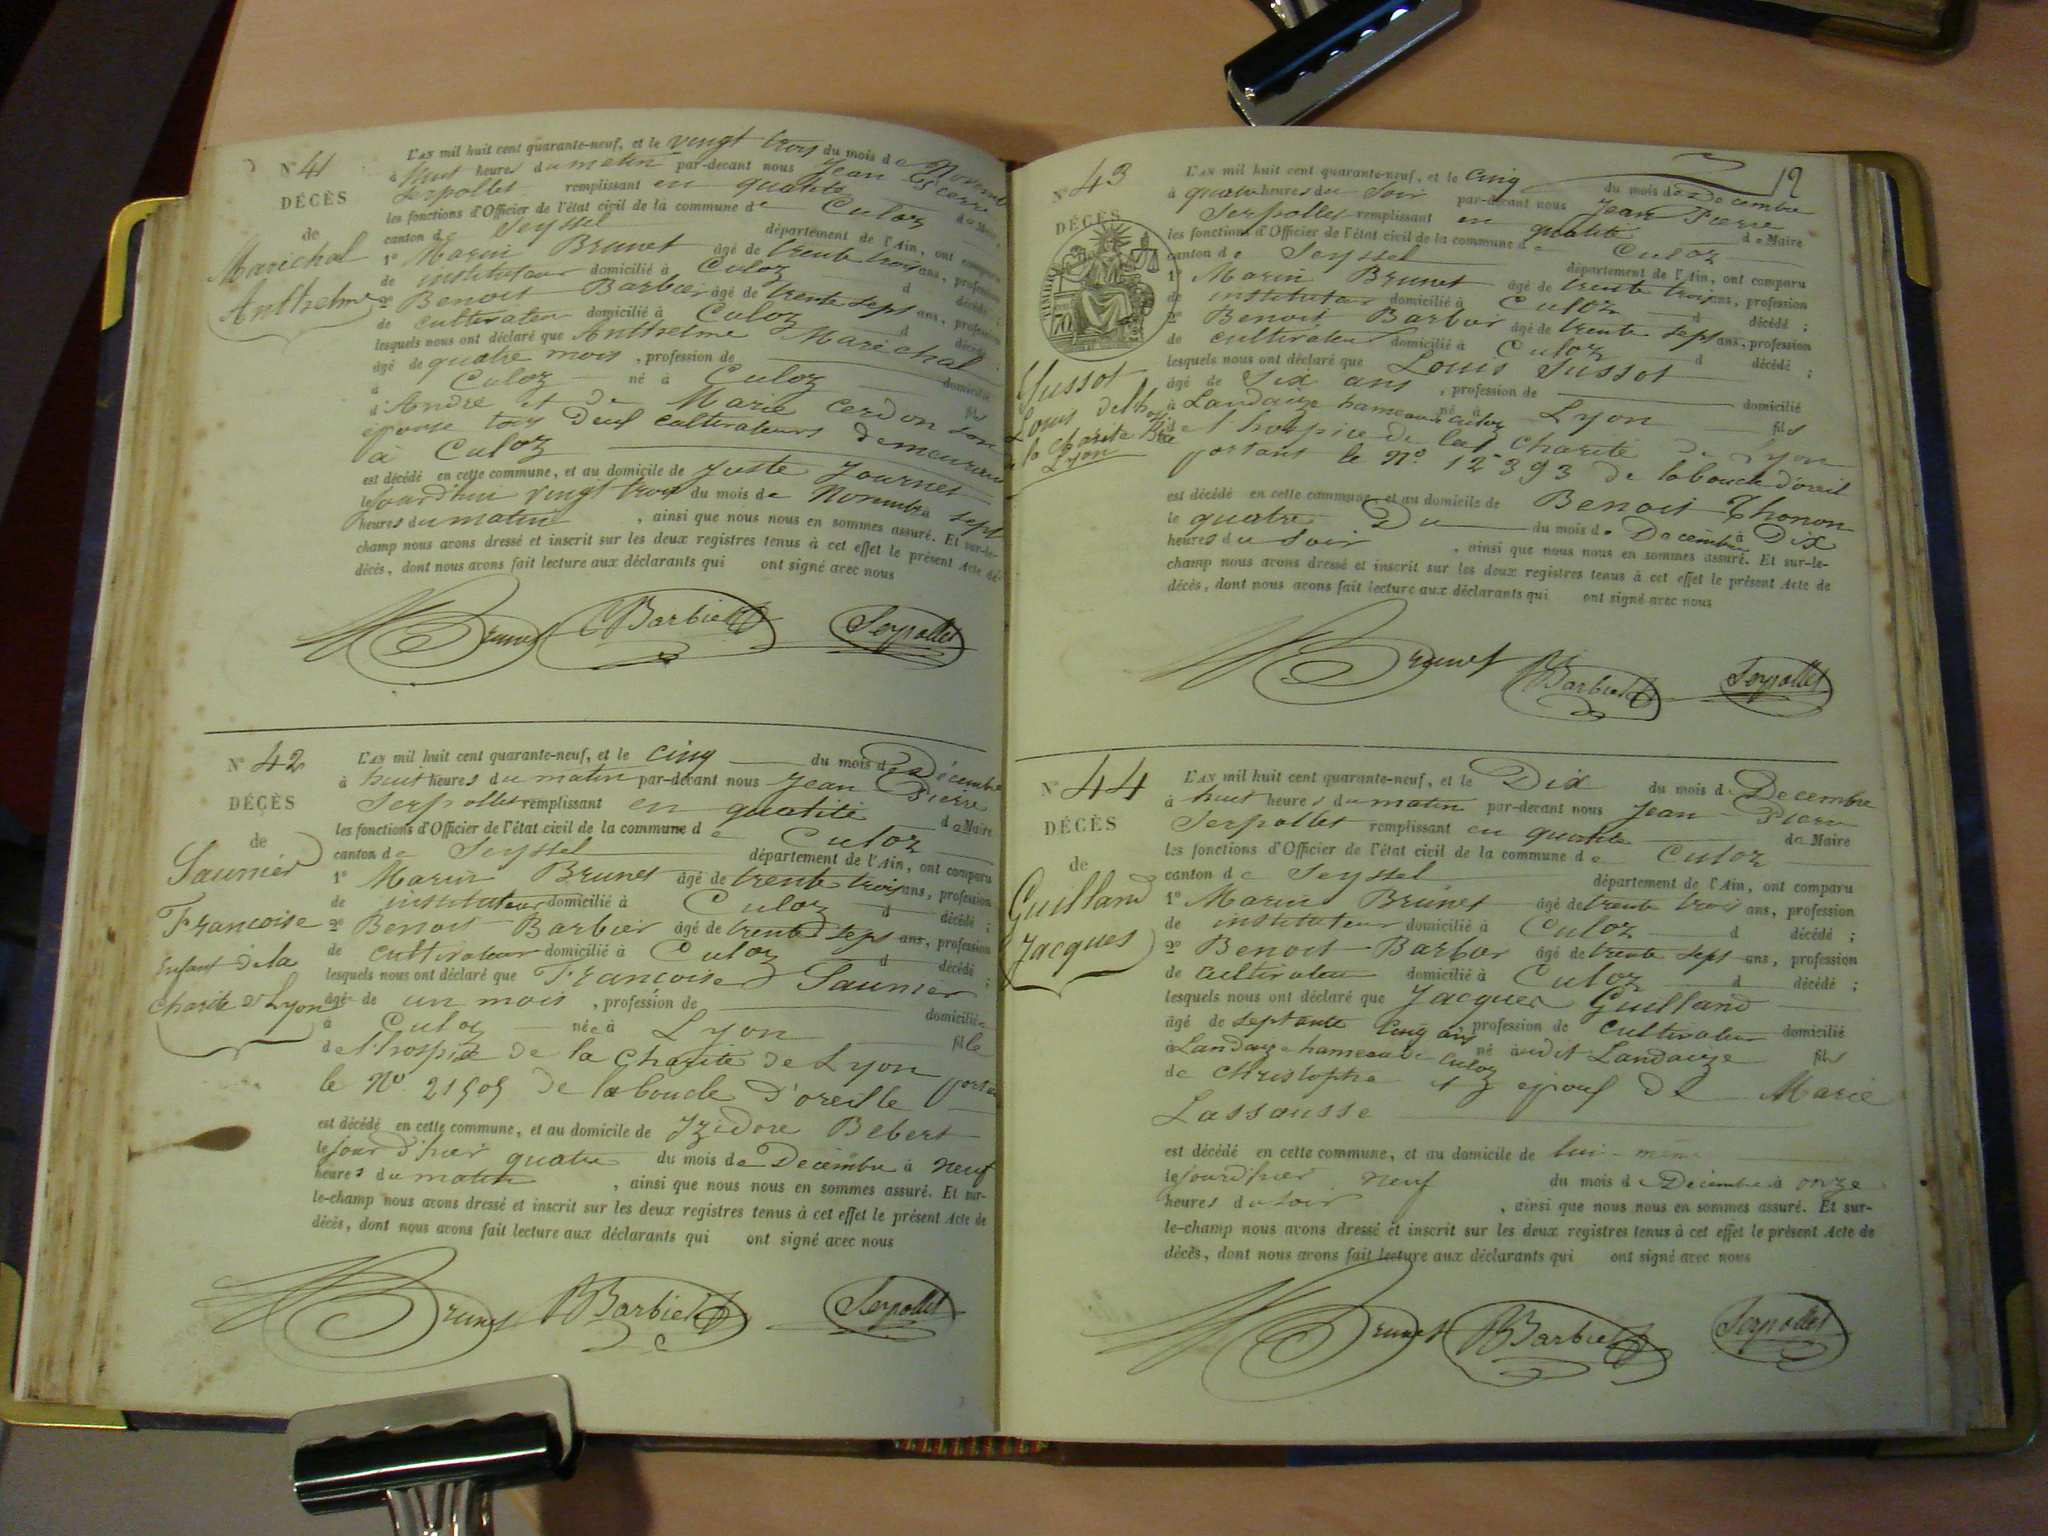 N° 41
DÉCÈS
de
Maréchal
Anthelme
L'AN mil huit cent quarante-neuf, et le vingt trois du mois de Novembre
à huit heures du matin par-devant nous Jean Pierre
Serpollet remplissant en qualité de Maire
les fonctions d'Officier de l'état civil de la commune de Culoz
canton de Seyssel département de l'Ain, ont comparu
1° Marin Brunet âgé de trente trois ans, profession
de instituteur domicilié à Culoz d décédé ;
2° Benoit Barbier âgé de trente sept ans, profession
de cultivateur domicilié à Culoz d décédé ;
lesquels nous ont déclaré que Anthelme Maréchal
âgé de quatre mois, profession de domicilié
à Culoz né à Culoz fils
d'André et de Marie Cerdon son
épouse tous deux cultivateurs demeurant
à Culoz
est décédé en cette commune, et au domicile de Juste Journet
le jourd'hui vingt trois du mois de Novembre à sept
heures du matin, ainsi que nous nous en sommes assuré. Et sur-le-
champ nous avons dressé et inscrit sur les deux registres tenus à cet effet le présent Acte de
décès, dont nous avons fait lecture aux déclarants qui ont signé avec nous
Brunet BBarbier Serpollet
N° 42
DÉCÈS
de
Saunier
Françoise
Enfant de la
Charité de Lyon
L'AN mil huit cent quarante-neuf, et le cinq du mois de Décembre
à huit heures du matin par-devant nous Jean Pierre
Serpollet remplissant en qualité de Maire
les fonctions d'Officier de l'état civil de la commune de Culoz
canton de Seyssel département de l'Ain, ont comparu
1° Marin Brunet âgé de trente trois ans, profession
de instituteur domicilié à Culoz d décédé ;
2° Benoit Barbier âgé de trente sept ans, profession
de cultivateur domicilié à Culoz d décédé ;
lesquels nous ont déclaré que Françoise Saunier
âgé de un mois, profession de domiciliée
à Culoz née à Lyon fille
de l'hospice de la Charité de Lyon portant
le N° 21505 de la boucle d'oreille
est décédé en cette commune, et au domicile de Izidore Bebert
le jour d'hier quatre du mois de Décembre à neuf
heures du matin, ainsi que nous nous en sommes assuré. Et sur-
le-champ nous avons dressé et inscrit sur les deux registres tenus à cet effet le présent Acte de
décès, dont nous avons fait lecture aux déclarants qui ont signé avec nous
Brunet BBarbier Serpollet
12
N° 43
DÉCÈS
TIMBRE
70
Jussot
Louis de l'hospice
la charité de
Lyon
L'AN mil huit cent quarante-neuf, et le cinq du mois de Décembre
à quatre heures du soir par-devant nous Jean Pierre
Serpollet remplissant en qualité de Maire
les fonctions d'Officier de l'état civil de la commune de Culoz
canton de Seyssel département de l'Ain, ont comparu
1° Marin Brunet âgé de trente trois ans, profession
de instituteur domicilié à Culoz d décédé ;
2° Benoit Barbier âgé de trente sept ans, profession
de cultivateur domicilié à Culoz d décédé ;
lesquels nous ont déclaré que Louis Jussot
âgé de six ans, profession de domicilié
à Landaize hameau de Culoz né à Lyon fils
de l'hospice de la charité de Lyon
portant le N° 12393 de la boucle d'oreil
est décédé en cette commune, et au domicile de Benoit Thonon
le quatre Du du mois de Décembre à Dix
heures du soir, ainsi que nous nous en sommes assuré. Et sur-le-
champ nous avons dressé et inscrit sur les deux registres tenus à cet effet le présent Acte de
décès, dont nous avons fait lecture aux déclarants qui ont signé avec nous
Brunet BBarbier Serpollet
N° 44
DÉCÈS
de
Guilland
Jacques
L'AN mil huit cent quarante-neuf, et le Dix du mois de Décembre
à huit heures du matin par-devant nous Jean Pierre
Serpollet remplissant en qualité de Maire
les fonctions d'Officier de l'état civil de la commune de Culoz
canton de Seyssel département de l'Ain, ont comparu
1° Marin Brunet âgé de trente trois ans, profession
de instituteur domicilié à Culoz d décédé ;
2° Benoit Barbier âgé de trente sept ans, profession
de cultivateur domicilié à Culoz d décédé ;
lesquels nous ont déclaré que Jacques Guilland
âgé de septante cinq ans profession de cultivateur domicilié
à Landaize hameau de Culoz né audit Landaize fils
de Christophe et époux de Marie
Lassausse
est décédé en cette commune, et au domicile de lui-même
le jourd'hier neuf du mois de Décembre à onze
heures du soir, ainsi que nous nous en sommes assuré. Et sur-
le-champ nous avons dressé et inscrit sur les deux registres tenus à cet effet le présent Acte de
décès, dont nous avons fait lecture aux déclarants qui ont signé avec nous
Brunet BBarbier Serpollet